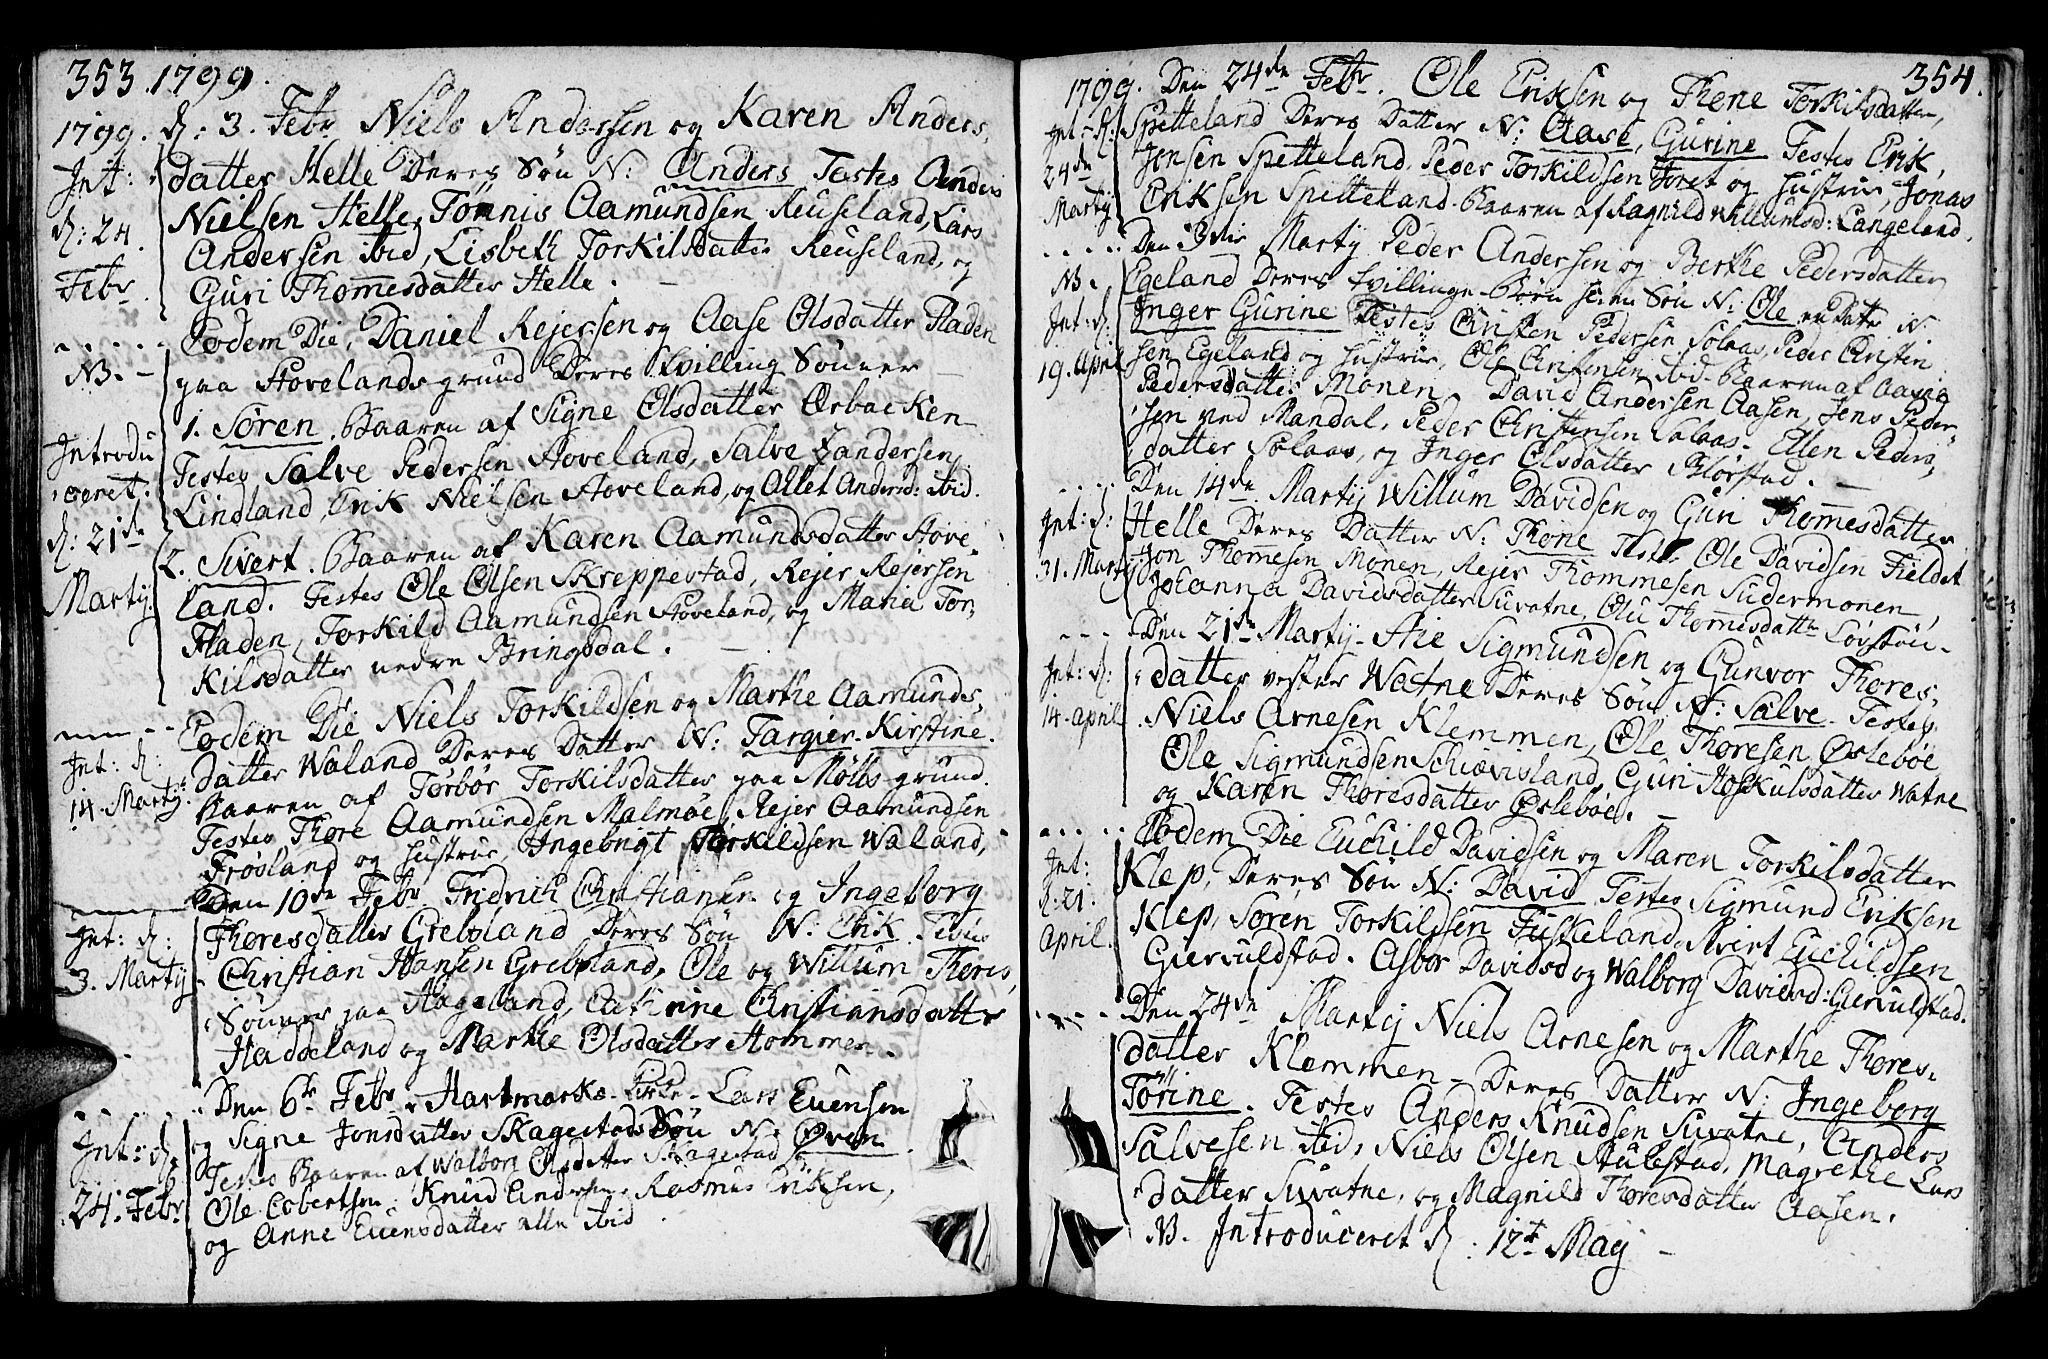 353. 1799.
1799. d: 3. Febr Niels Andersen og Karen Anders,
Int: datter Helle Deres Søn N: Anders Testes Anders
Nielsen Helle, Tönnis Aamundsen Reuseland, Lars
d: 24. Andersen ibid, Lisbeth Torkilsdatter Reuseland, og
Febr Guri Thommesdatter Helle.
Eodem Die, Daniel Rejersen og Aase Olsdatter Fladen
NB. paa Hovelands grund Deres tvilling Sønner
1. Søren. Baaren af Signe Olsdatter Ørbacken
Introdu Testes Salve Pedersen Hoveland, Salve Zandersen
ceret: Lindland, Erik Nielsen Hoveland, og Allet Andersd: ibid.
d: 21de 2. Sivert. Baaren af Karen Aamundsdatter Hove
Martij. land. Testes Ole Olsen Skreppestad, Rejer Rejersen
Fladen, Torkild Aamundsen Hoveland, og Maria Tor,
Kilsdatter nedre Bringsdal.
Eodem Die Niels Torkildsen og Marthe Aamunds,
Int: d: datter Waland Deres Datter N: Targier Kirstine.
14. Martij. Baaren af Torbør Torkilsdatter paa Mølbs grund.
Testes Thore Aamundsen Malmøe, Rejer Aamundsen
Frøsland og Hustrue, Ingebrigt Torkildsen Waland,
Den 10de Febr Fridrich Christiansen og Ingeborg
Int: d: Thoresdatter Grebsland Deres Søn N: Erik Testes
3. Martij Christian Hansen Grebsland, Ole og Willum Thores,
Sønner paa Hageland, Cathrine Christiansdatter
Haddeland og Marthe Olsdatter Hommen.
Den 6te Febr i Hartmarks Kirke. Lars Euensen
Int: d: og Signe Jonsdatter Skagestad Søn N: Øven
Testes Baaren af Walborg Olsdatter Skagestad
24. Febr Ole Cobertsen, Knud Andersen, Rasmus Eriksen,
og Anne Euensdatter alle ibid.
1799. Den 24de Febr. Ole Eriksen og Thone Torkilsdatter, 354.
Int: d: Spetteland Deres Datter N: Aase, Gurine Testes Erik
24de Jensen Spetteland, Peder Torkildsen Foret og Hustrue, Jonas
Martij Eriksen Spetteland. Baaren af Ragnild Willumsd: Langeland.
Den Martij Peder Andersen og Berthe Pedersdatter
NB. Egeland Deres tvillinge Børn en Søn N: Ole en Datr N
Int: d: Inger Gurine Testes Christen Pedersen Solaas, Peder Christen
19. April sen Egeland og Hustrue, Ole Christensen ibid. Baaren af Aasne
Pedersdatter Monen. David Andersen Aasen, Jens Peder,
sen ved Mandal, Peder Christensen Salaas. Ellen Peders,
datter Solaas, og Inger Olsdatter Blørstad.
Den 14de Martij Willum Davidsen og Guri Thommesdatter
Int: d: Helle Deres Datter N: Thone Test: Ole Davidsen Fieldet
31. Martij Jon Thomesen Monen, Rejer Thommesen Sudermonen,
Johanna Davidsdatter Suvatne, Olu Thomesdattr Løvstøn.
Den 21de Martij. Atie Sigmundsen og Gunvor Thores,
Int: d: datter vester Watne Deres Søn N: Salve. Testes
14. April Niels Arnesen Klemmen, Ole Thoresen Øslebøe
Ole Sigmundsen Schiævisland, Guri Hoskulsdatter Watne
og Karen Thoresdatter Øslebøe.
Eodem Die Euchild Davidsen og Maren Torkilsdatter
Int: Klep, Deres Søn N: David Testes Sigmund Eriksen
d: 21. Klep, Søren Torkildsen Fuskeland, Sivert Euchildsen
April. Giervuldstad. Asbor Davidsd og Walborg Davidsd: Giervuldstad.
Den 24de Martij Niels Arnesen og Marthe Thores,
datter Klemmen. Deres Datter N: Ingeborg
Törine. Testes Anders Knudsen Suvatne, Anders
Salvesen ibid, Niels Olsen Stulestad, Magrethe Lars
datter Suvatne, og Magnild Thoresdatter Aasen.
NB. Introduceret d. 12te Maij